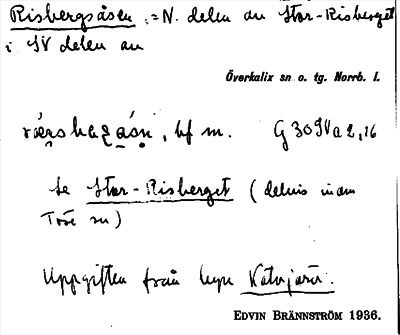 Risbergsåsen, = N. delen av Stor-Risberget
i SV delen av
Överkalix sn o. tg. Norrb. l.
bf m. G 3091 a 2, 16
se Stor-Risberget (delvis inom
Töre sn)
Uppgiften från byn Kätvjärv.
EDVIN BRÄNNSTRÖM 1936.